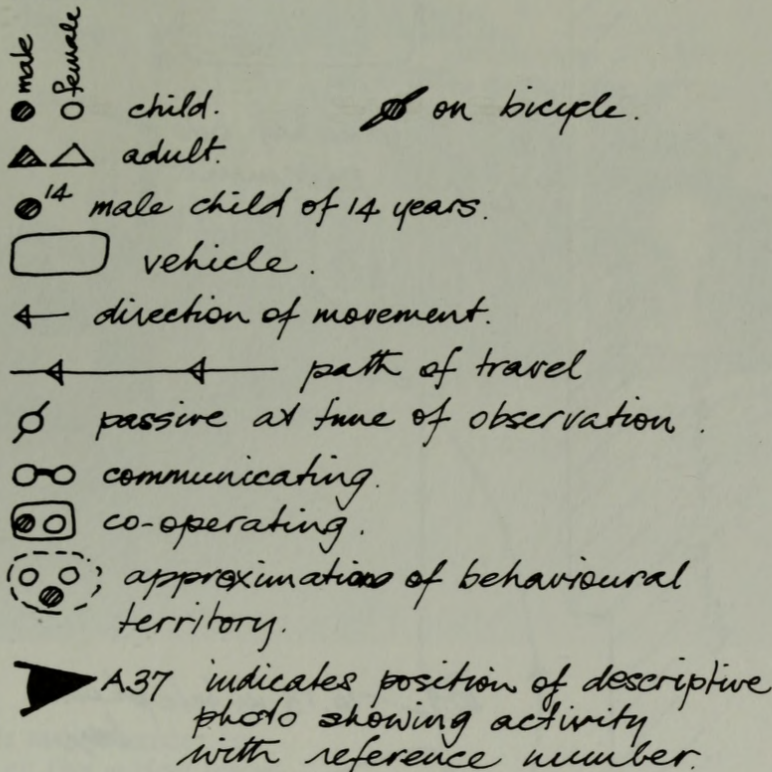 male
female
child.
on bicycle.
adult.
14 male child of 14 years.
vehicle.
direction of movement.
path of travel
passive at time of observation.
communicating.
co-operating.
approximation of behavioural
territory.
A37 indicates position of descriptive
photo showing activity
with reference number.